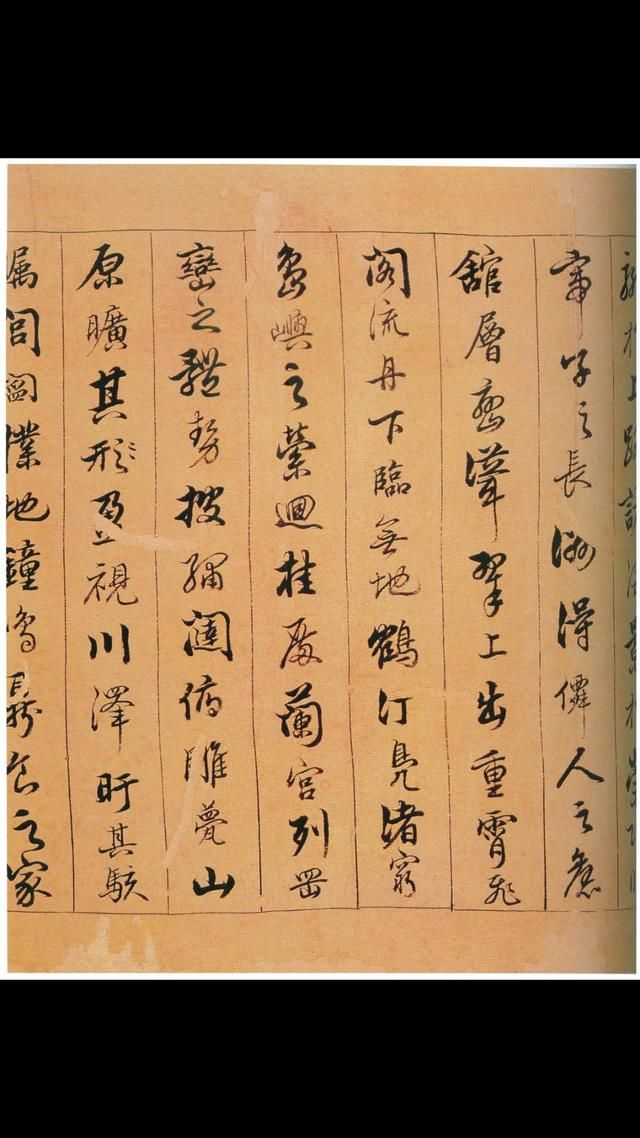 帝子之長洲得僊人之舊
館層巒聳翠上出重霄飛
閣流丹下臨無地鶴汀鳧渚窮
島嶼之縈迴桂殿蘭宮列岡
巒之體勢披繡闥俯雕甍山
原曠其形盈視川澤盱其駭
矚閭閻撲地鐘鳴鼎食之家